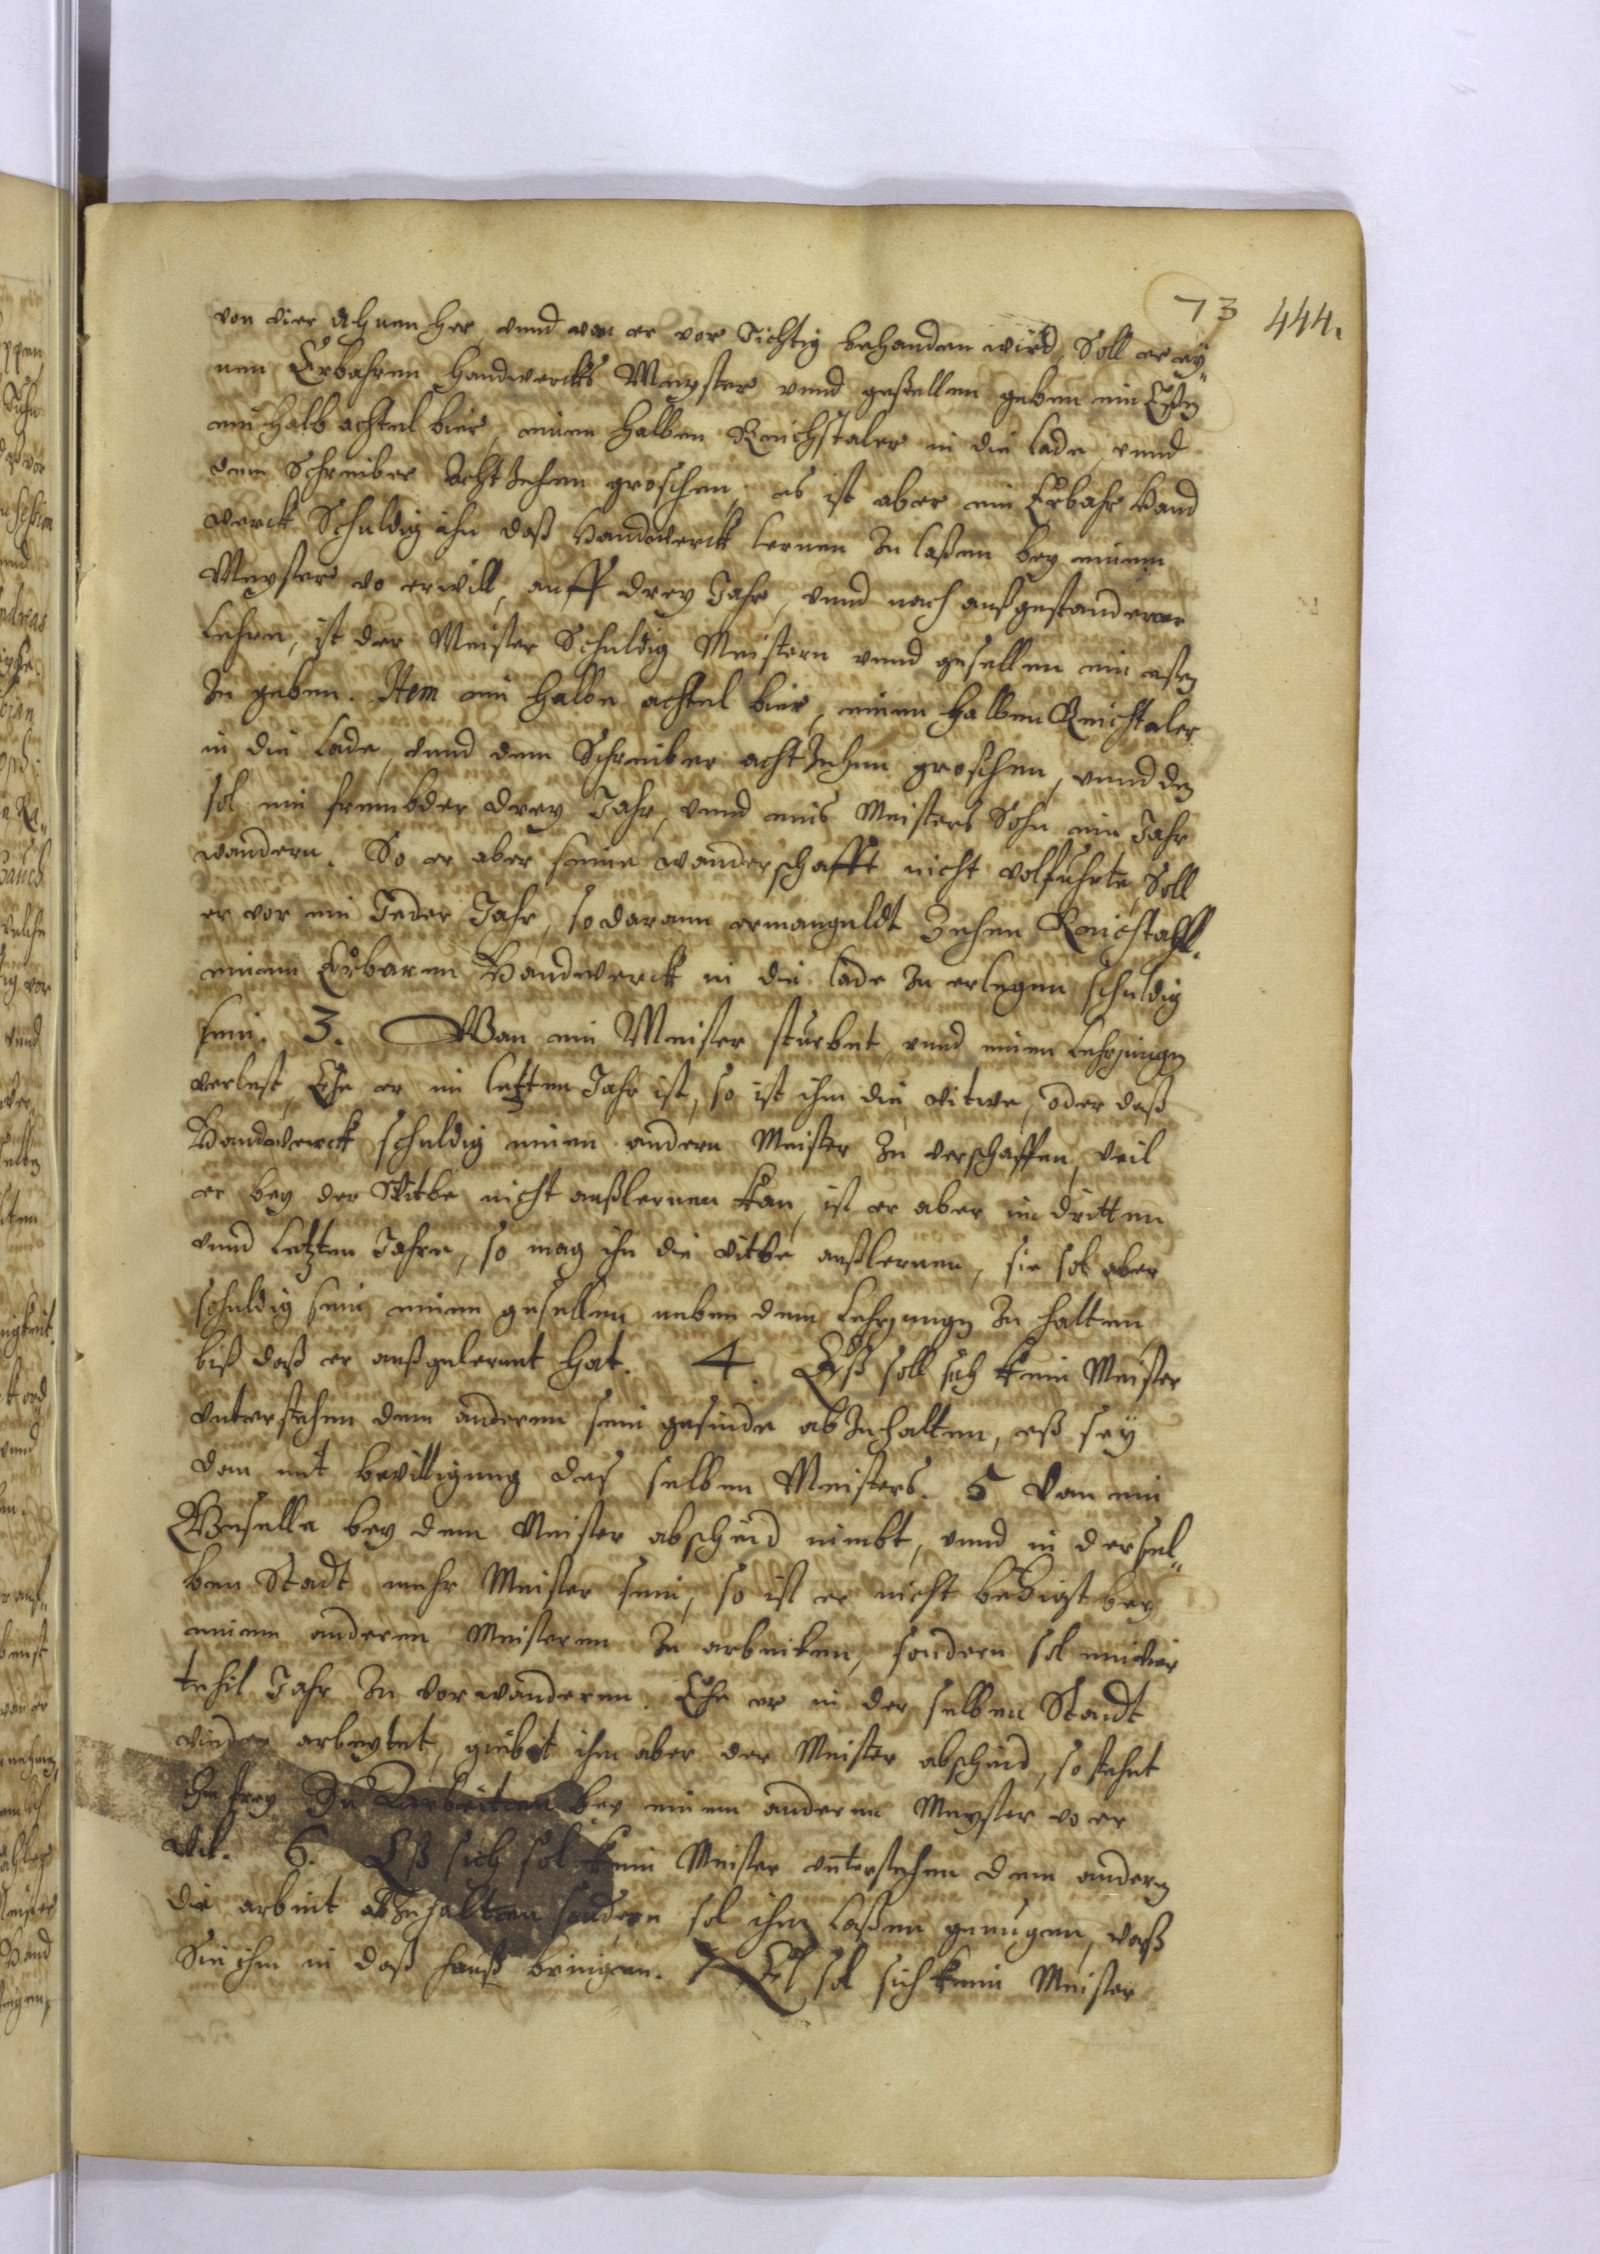 73 444.
von vier Ahnen her, vnnd wan er vor Tichtig behanden wird, Soll er ey„
nem Erbahren Handwercks Meyster vnnd geßellen geben ein Eßen
ein halb achtel bier, einen halben Reichstaler in die lade, vnnd
dem Schreiber Achtzehen groschen, es ist aber ein Erbahr Hand
werck Schuldig ihn daß Handtwerck lernen zu laßen bey einem
Meyster wo er will, auff drey Jahr, vnnd nach außgestandener
Lehre, ist der Meister Schuldig Meistern vnnd gesellen ein essen
zu geben. Item ein halbe achtel bier, einen halben Reichstaler
in die Lade, vnnd dem Schreiber achtzehen groschen, vnnd den
sol ein frembder drey Jahr, vnnd eines Meisters Sohn ein Jahr
wandern. So er aber seine wanderschafft nicht volfuhrte, Soll
er vor ein Jeder Jahr, so daran ermangeldt Zehen Reichstahl.
einem Erbaren Handwerck in die lade zu erlegen schuldig
sein. 3. Wan ein Meister sturbet, vnnd einen Lehrjungen
verlest, Ehe er im letzten Jahr ist, so ist ihm die witwe, oder daß
Handwerck schuldig einen andern Meister zu verschaffen, weil
er bey der Witbe nicht außlernen kan, ist er aber im dritten
vnnd Letzten Jahre, so mag ihn die witbe außlernen, sie sol aber
schuldig sein einen gesellen neben dem Lehrjungen zu halten,
biß daß er außgelernet hat. 4. Eß soll sich kein Meister
vnterstehen dem anderen sein gesinde abzuhalten, eß sey
dan mit bewilligung des selben Meisters. 5 Wan ein
Geselle bey dem Meister abscheid nimbt, vnnd in dersel„
ben Stadt mehr Meister sein, so ist er nicht befugt bey
einem anderen Meisteren zu arbeiten, sondern sol ein vier
tehil Jahr zu vor wanderen. Ehe er in der selben Stadt
wider arbeytet, giebet ihm aber der Meister abscheid, so stehet
ihm frey Zu Larbeiten bey einem anderen Meyster wo er
wil. 6. Eß sich sol kein Meister vnterstehen dem andern
die arbeit abzuhalten sondern sol ihm laßen genugen, waß
Sie ihm in daß hauß bringen. 7 Es sol sich kein Meister